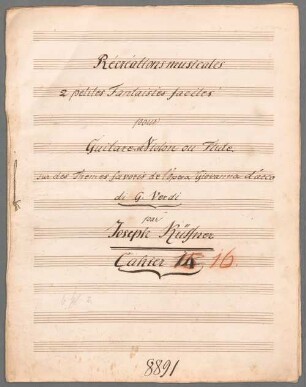 Récréations musicales
2 petites Fantaisies faciles
pour
Guitare & Violon ou Flute
sur des Themes favoris de l'opera Giovanna d'Arco
di G. Verdi
par
Joseph Küffner
Cahier 16
8891